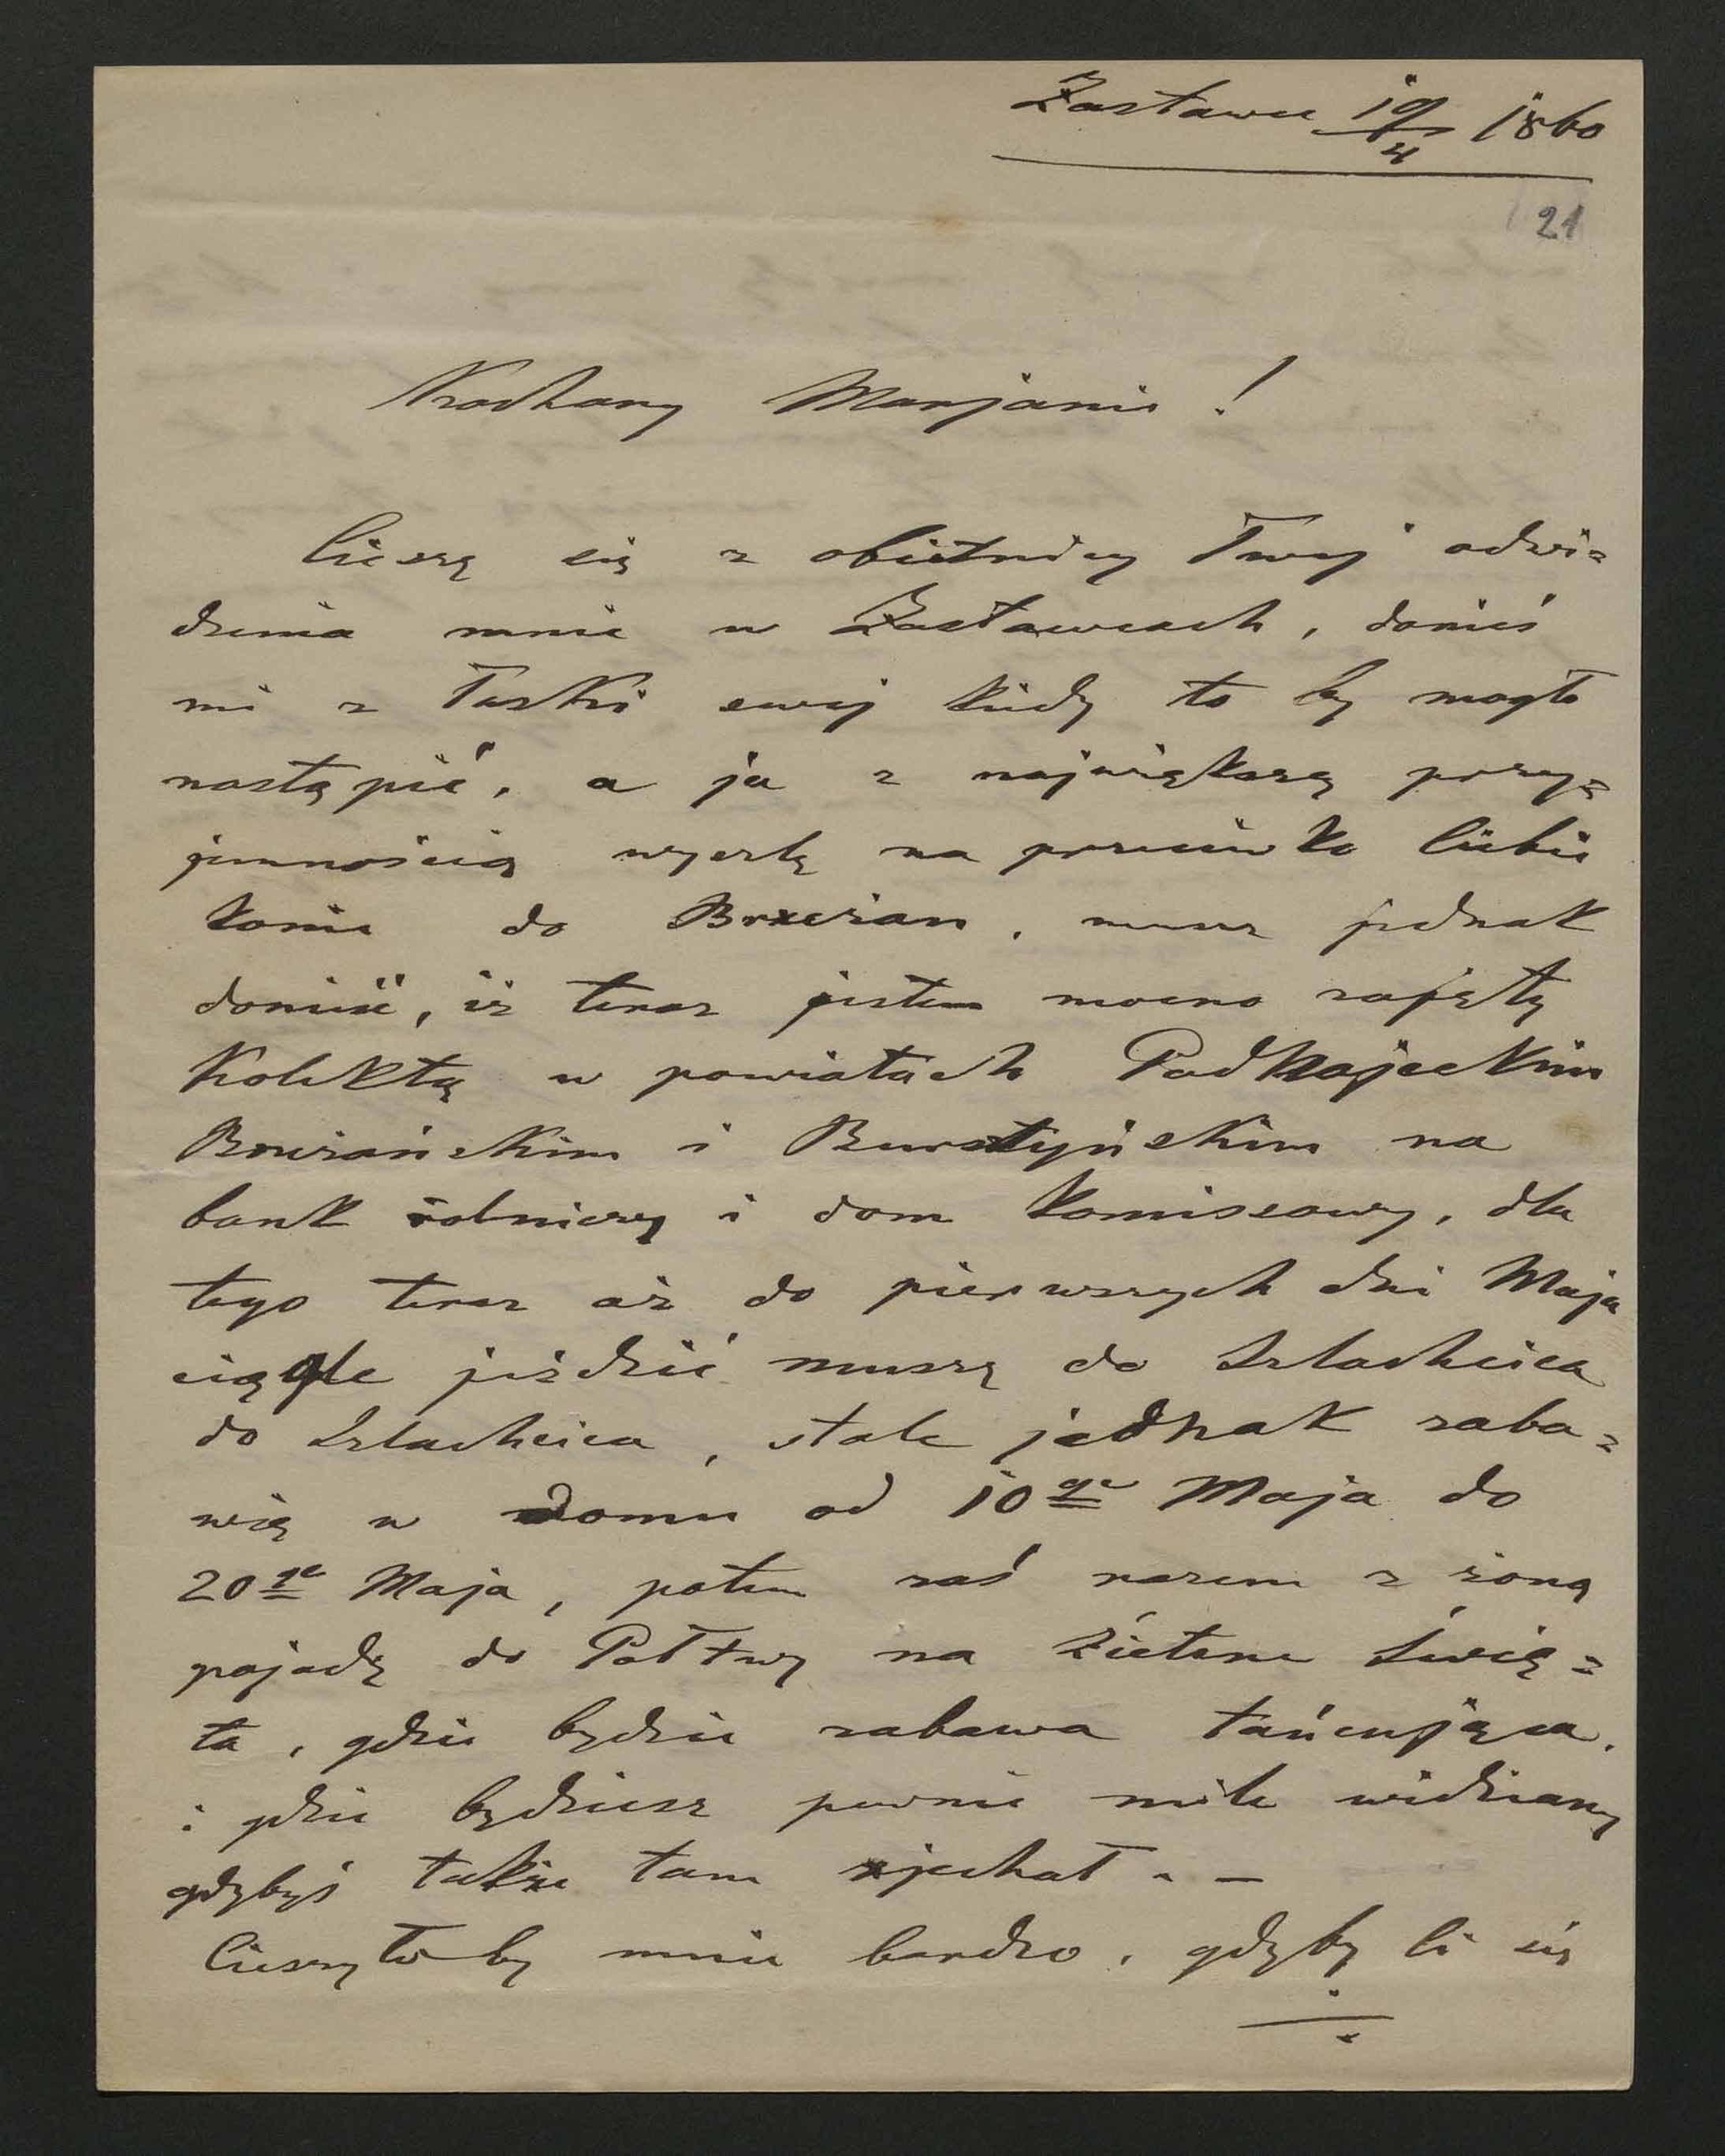 Zastawce 19/4 1860
21
Kochany Marjanie !
Cieszę się z obietnicy Twej odwi=
dzenia mnie w Zastawcach, donieś
mi z łaski swej kiedy to by mogło
nastąpić, a ja z największą przy=
jemnością wyszlę na przeciwko Ciebie
konie do Brzeżan, muszę jednak
donieść, iż teraz jestem mocno zajęty
Kolektą w powiatach Podhajeckim
Brzeżańskim i Bursztyńskim na
bank rolniczy i dom komissowy, dla
tego teraz aż do pierwszych dni Maja
ciągle jeździć muszę do Szlachcica
do Szlachcica, stale jednak zaba=
wię w domu od 10go Maja do
20go Maja, potem zaś razem z żoną
pojadę do Połtwy na Zielone Świę=
ta, gdzie będzie zabawa tańcująca,
i gdzie będziesz pewnie mile widziany
gdybyś także tam zjechał. —
Cieszyło by mnie bardzo, gdyby Ci się